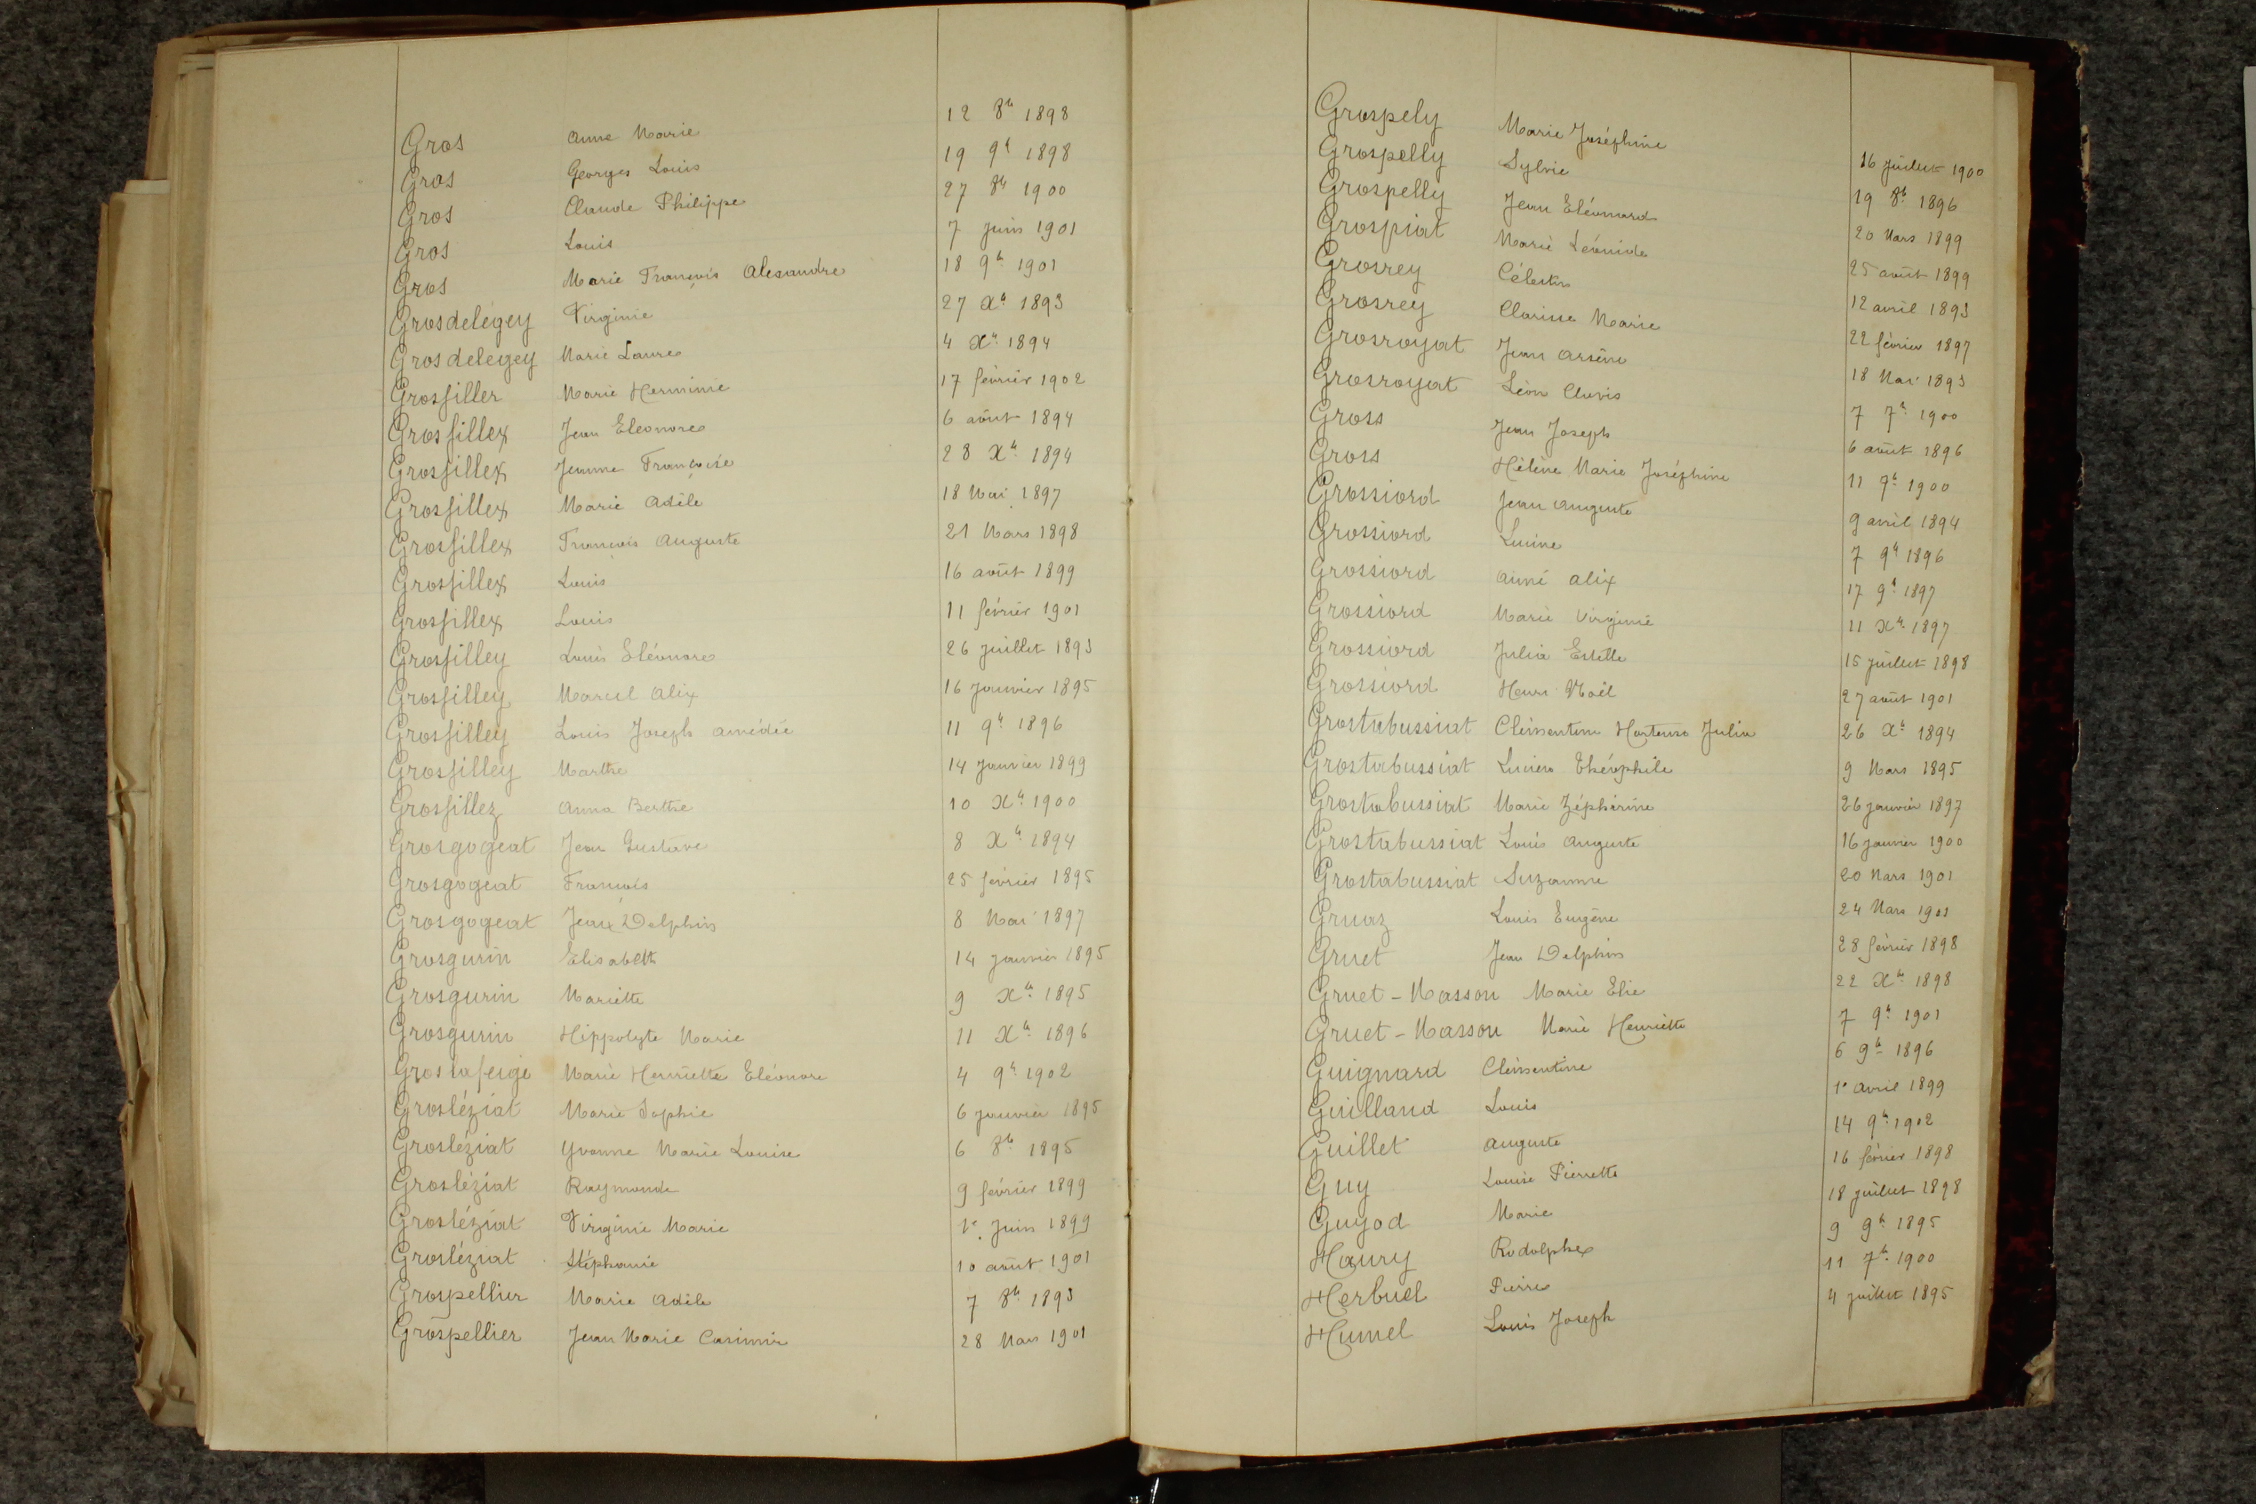 Gros Anne Marie 12 8bre 1898
Gros Georges Louis 19 9bre 1898
Gros Claude Philippe 27 8bre 1900
Gros Louis 7 juin 1901
Gros Marie François Alexandre 18 9bre 1901
Grosdelégey Virginie 27 Xbre 1893
Grosdelegey Marie Laure 4 Xbre 1894
Grosfiller Marie Herminie 17 février 1902
Grosfillex Jean Eléonore 6 août 1894
Grosfillex Jeanne Françoise 28 Xbre 1894
Grosfillex Marie Adèle 18 Mai 1897
Grosfillex François Auguste 21 Mars 1898
Grosfillex Louis 16 août 1899
Grosfillex Louis 11 février 1901
Grosfilley Louis Eléonore 26 juillet 1893
Grosfilley Marcel Alix 16 janvier 1895
Grosfilley Louis Joseph Amédée 11 9bre 1896
Grosfilley Marthe 14 janvier 1899
Grosfillez Anna Berthe 10 Xbre 1900
Grosgogeat Jean Gustave 8 Xbre 1894
Grosgogeat François 25 février 1895
Grosgogeat Jean Delphin 8 Mai 1897
Grosgurin Elisabeth 14 janvier 1895
Grosgurin Mariette 9 Xbre 1895
Grosgurin Hippolyte Marie 11 Xbre 1896
Groslafeige Marie Henriette Eléonore 4 9bre 1902
Grosléziat Marie Sophie 6 janvier 1895
Grosléziat Yvonne Marie Louise 6 8bre 1895
Grosléziat Raymonde 9 février 1899
Grosléziat Virginie Marie 1er Juin 1899
Grosléziat Stéphanie 10 août 1901
Grospellier Marie Adèle 7 8bre 1893
Grospellier Jean Marie Casimir 28 Mars 1901
Grospely Marie Joséphine 16 juillet 1900
Grospelly Sylvie 19 8bre 1896
Grospelly Jean Eléonard 20 Mars 1899
Grospiat Marie Léonide 25 août 1899
Grosrey Célestin 12 avril 1893
Grosrey Clarisse Marie 22 février 1897
Grosroyat Jean Arsène 18 Mai 1893
Grosroyat Léon Clovis 7 7bre 1900
Gross Jean Joseph 6 août 1896
Gross Hélène Marie Joséphine 11 9bre 1900
Grossiord Jean Auguste 9 avril 1894
Grossiord Lucine 7 9bre 1896
Grossiord Aimé Alix 17 9bre 1897
Grossiord Marie Virginie 11 Xbre 1897
Grossiord Julia Estelle 15 juillet 1898
Grossiord Henri Noël 27 août 1901
Grostabussiat Clémentine Hortense Julia 26 Xbre 1894
Grostabussiat Lucien Théophile 9 Mars 1895
Grostabussiat Marie Zéphirine 26 janvier 1897
Grostabussiat Louis Auguste 16 janvier 1900
Grostabussiat Suzanne 20 Mars 1901
Gruaz Louis Eugène 24 Mars 1901
Gruet Jean Delphin 28 février 1898
Gruet-Masson Marie Elie 22 Xbre 1898
Gruet-Masson Marie Henriette 7 9bre 1901
Guignard Clémentine 6 9bre 1896
Guilland Louis 1er avril 1899
Guillet Auguste 14 9bre 1902
Guy Louise Pierrette 16 février 1898
Guyod Marie 18 juillet 1898
Haury Rodolphe 9 9bre 1895
Herbuel Pierre 11 7bre 1900
Humel Louis Joseph 4 juillet 1895